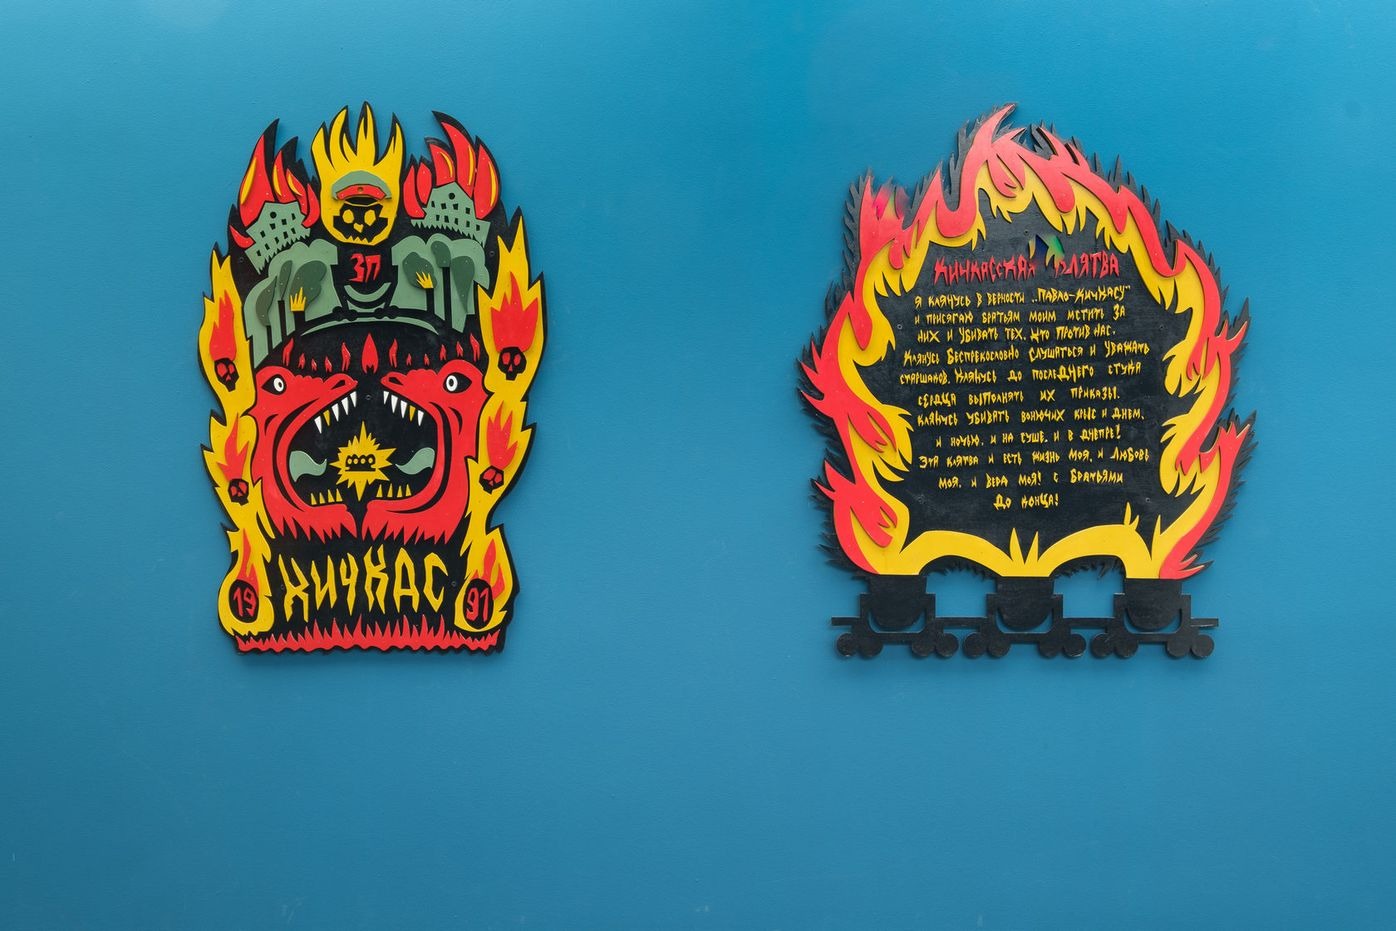 ЗП
КИЧКАС
19 91
КИЧКАССКАЯ КЛЯТВА
Я КЛЯНУСЬ В ВЕРНОСТИ „ПАВЛО-КИЧКАСУ"
И ПРИСЯГАЮ БРАТЬЯМ МОИМ МСТИТЬ ЗА
НИХ И УБИВАТЬ ТЕХ, КТО ПРОТИВ НАС.
КЛЯНУСЬ БЕСПРЕКОСЛОВНО СЛУШАТЬСЯ И УВАЖАТЬ
СТАРШАКОВ. КЛЯНУСЬ ДО ПОСЛЕДНЕГО СТУКА
СЕРДЦА ВЫПОЛНЯТЬ ИХ ПРИКАЗЫ.
КЛЯНУСЬ УБИВАТЬ ВОНЮЧИХ КРЫС И ДНЕМ,
И НОЧЬЮ, И НА СУШЕ, И В ДНЕПРЕ!
ЭТА КЛЯТВА И ЕСТЬ ЖИЗНЬ МОЯ, И ЛЮБОВЬ
МОЯ, И ВЕРА МОЯ! С БРАТЬЯМИ
ДО КОНЦА!